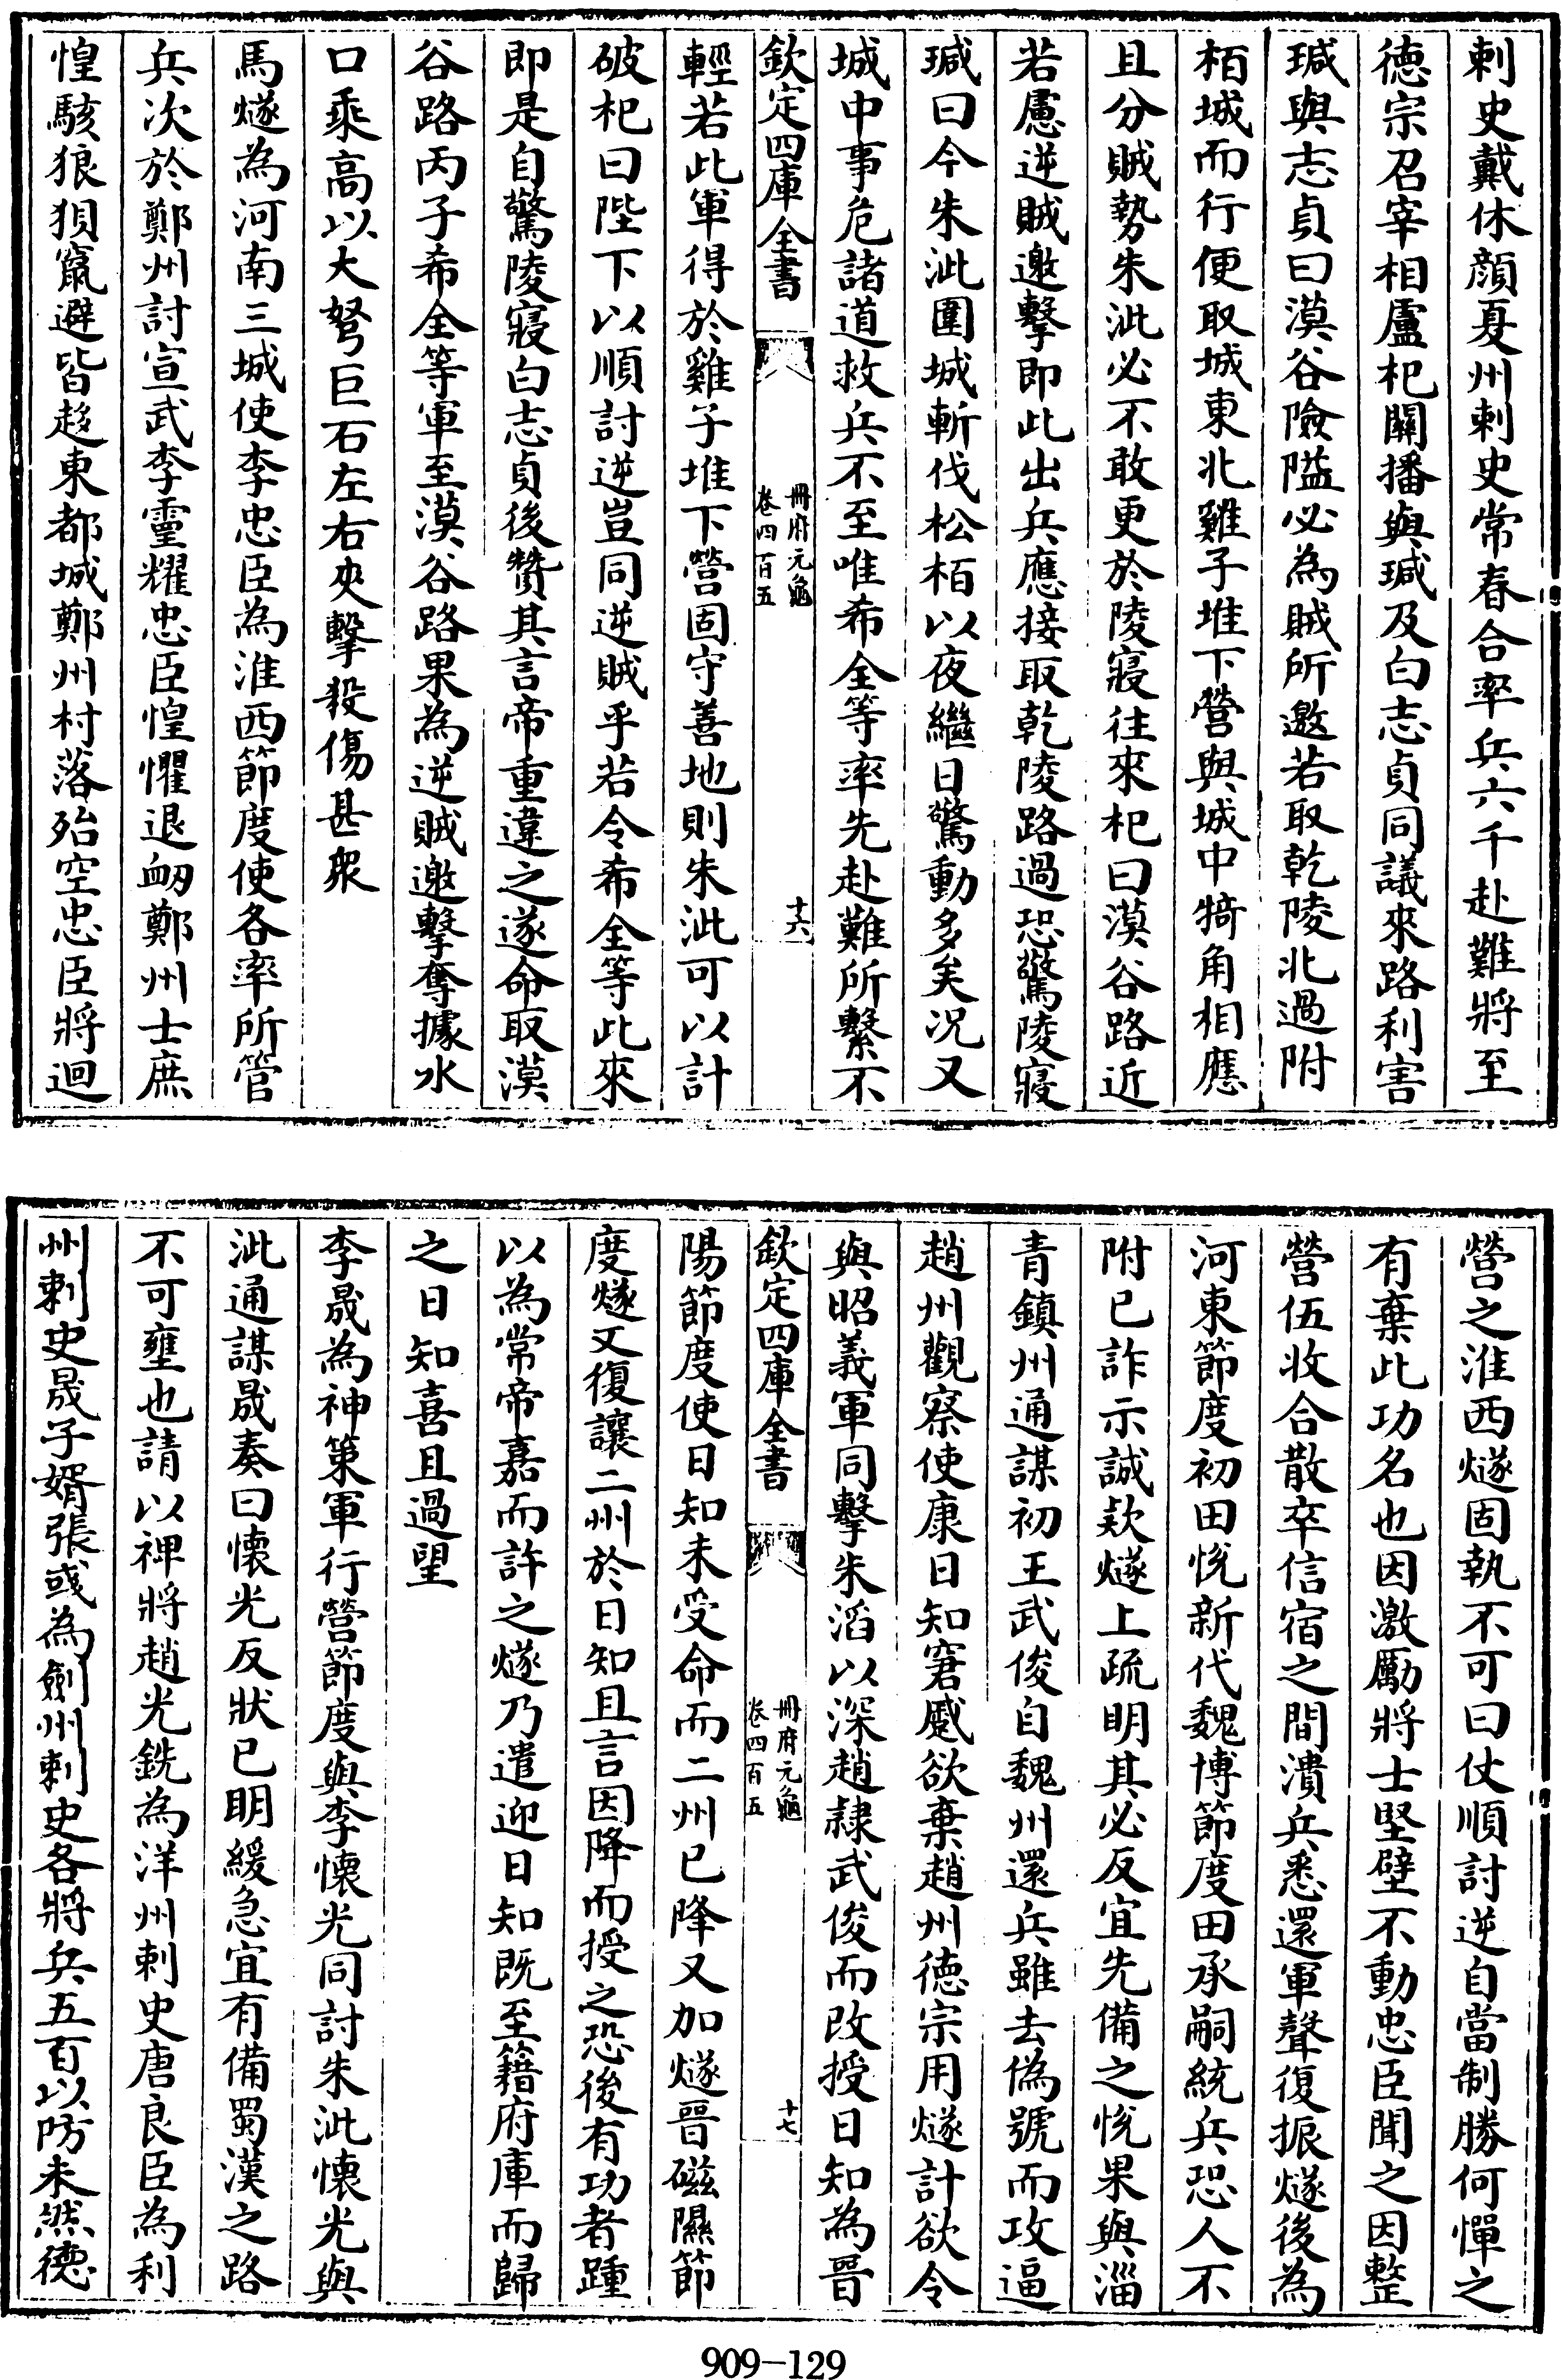 刺史戴休顔夏州刺史常春合率兵六千赴難將至
徳宗召宰相盧杞關播與瑊及白志貞同議來路利害
瑊與志貞曰漠谷險隘必為賊所邀若取乾陵北過附
栢城而行便取城東北雞子堆下營與城中犄角相應
且分賊勢朱泚必不敢更於陵寢往來杞曰漠谷路近
若慮逆賊邀擊即此出兵應接取乾陵路過恐驚陵寢
瑊曰今朱泚圍城斬伐松栢以夜繼日驚動多矣况又
城中事危諸道救兵不至唯希全等率先赴難所繫不
欽定四庫全書
冊府元龜
卷四百五
十六
輕若此軍得於雞子堆下營固守善地則朱泚可以計
破杞曰陛下以順討逆豈同逆賊乎若令希全等此來
即是自驚陵寢白志貞後贊其言帝重違之遂命取漠
谷路丙子希全等軍至漠谷路果為逆賊邀擊奪據水
口乘高以大弩巨石左右夾擊殺傷甚衆
馬燧為河南三城使李忠臣為淮西節度使各率所管
兵次於鄭州討宣武李靈耀忠臣惶懼退衂鄭州士庶
惶駭狼狽竄避皆趍東都城鄭州村落殆空忠臣將迴
營之淮西燧固執不可曰仗順討逆自當制勝何憚之
有棄此功名也因激勵將士堅壁不動忠臣聞之因整
營伍收合散卒信宿之間潰兵悉還軍聲復振燧後為
河東節度初田悅新代魏博節度田承嗣統兵恐人不
附已詐示誠款燧上疏明其必反宜先備之悅果與淄
青鎮州通謀初王武俊自魏州還兵雖去偽號而攻逼
趙州觀察使康日知窘蹙欲棄趙州徳宗用燧計欲令
與昭義軍同擊朱滔以深趙隷武俊而改授日知為晉
欽定四庫全書
冊府元龜
卷四百五
十七
陽節度使日知未受命而二州已降又加燧晉磁隰節
度燧又復讓二州於日知且言因降而授之恐後有功者踵
以為常帝嘉而許之燧乃遣迎日知既至籍府庫而歸
之日知喜且過望
李晟為神策軍行營節度與李懐光同討朱泚懐光與
泚通謀晟奏曰懐光反狀已明緩急宜有備蜀漢之路
不可壅也請以禆將趙光銑為洋州刺史唐良臣為利
州刺史晟子婿張彧為劍州刺史各將兵五百以防未然徳
909-129